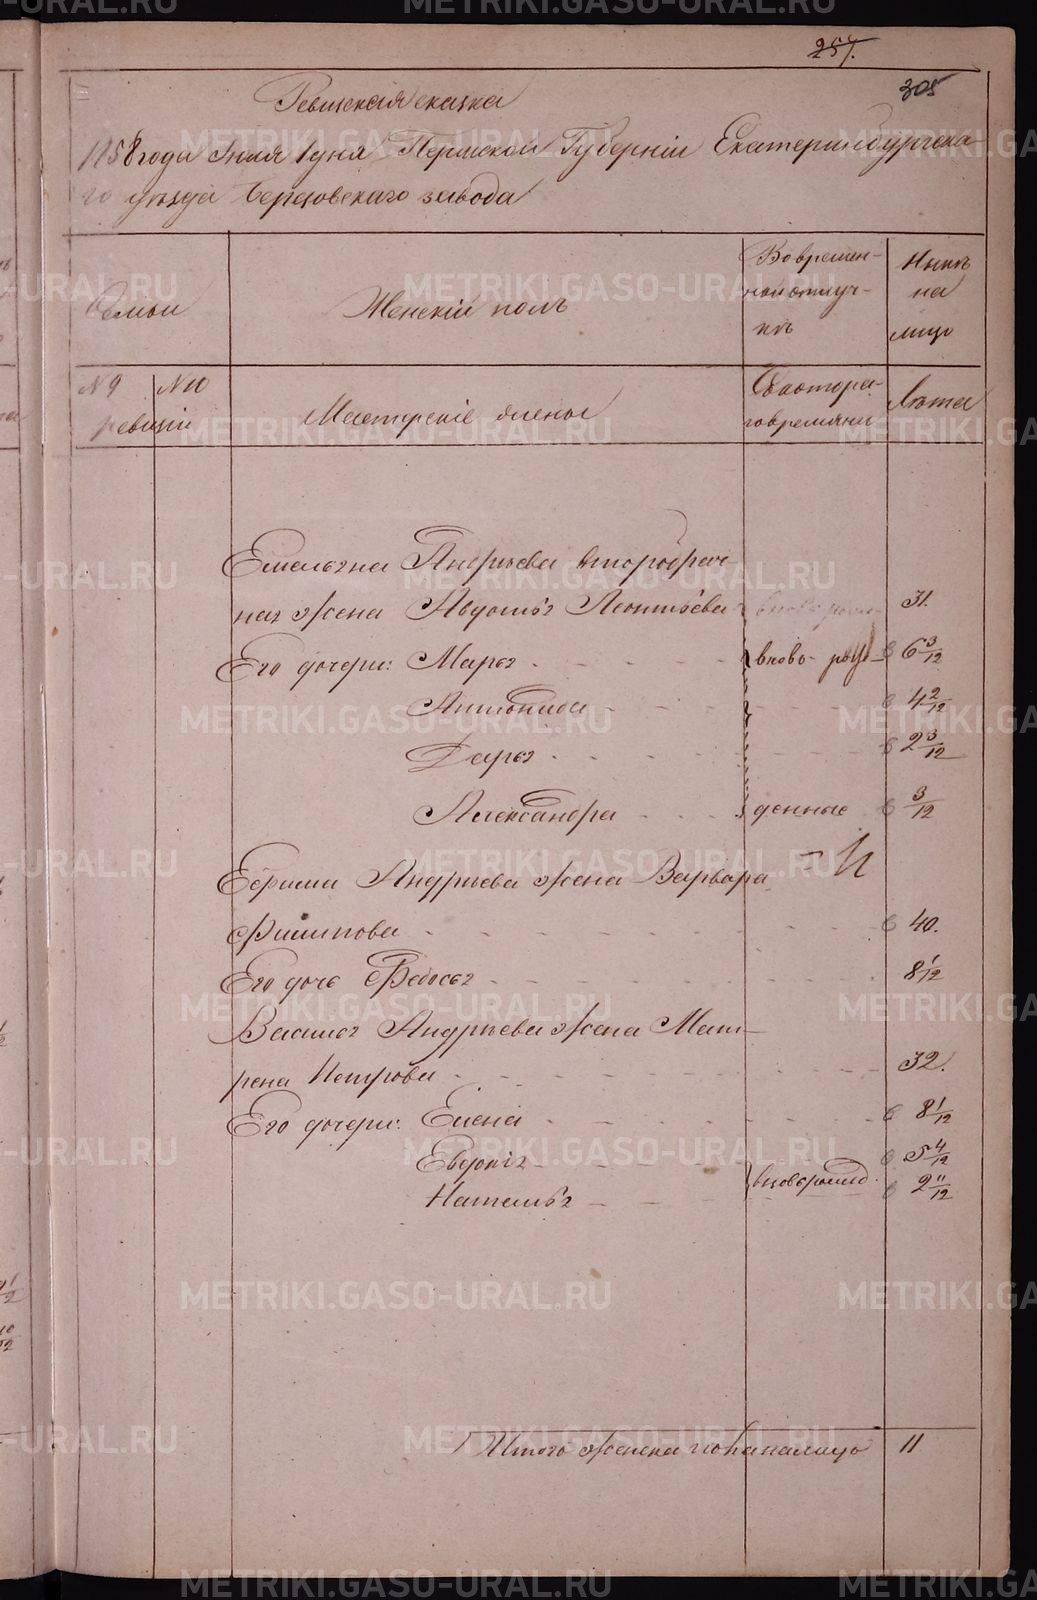 257.
305
Ревизская сказка
1858 года Iюня 1 дня Пермской Губернiи Екатеринбургска
го уѣзда Березовскаго завода
Семьи
Женскiй полъ
Вовремен-
ной отлуч-
кѣ
Нынѣ
на
лицо
№ 9
№ 10
ревизiи
Мастерскiе жены
Съ котора-
го времяни
Лѣта
Емельяна Андрѣева второбрач-
ная жена Авдотья Леонтьева 31.
Его дочери: Марья вновь рож 6 3/12
Антонида 4 2/12
Дарья 2 3/12
Александра денные 3/12
Ефима Андрѣева жена Варвара
Филипова 40.
Его дочь Федосья 8 1/12
Василья Андрѣева жена Мат-
рена Петрова 32.
Его дочери: Елена 8 1/12
Евдокiя 5 4/12
Наталья вновьрожд. 2 11/12
Итого женска пола налицо 11
METRIKI.GASO-URAL.RU